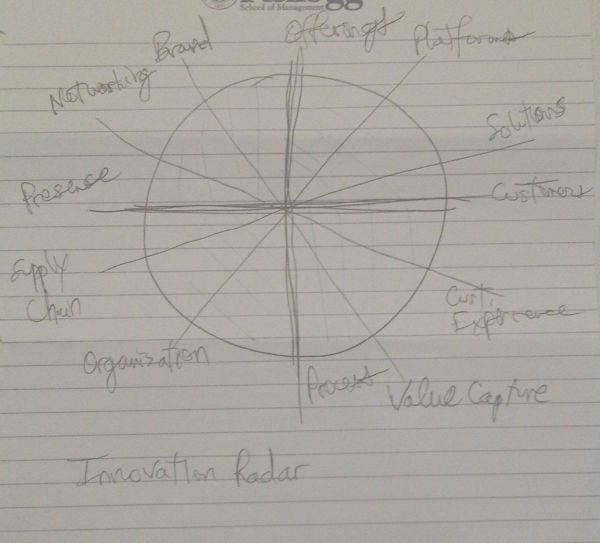 School of Management
Offerings
Platforms
Brand
Networking
Solutions
Presense
Customers
Supply
Chain
Cust.
Experience
Organization
Process
Value Capture
Innovation Radar